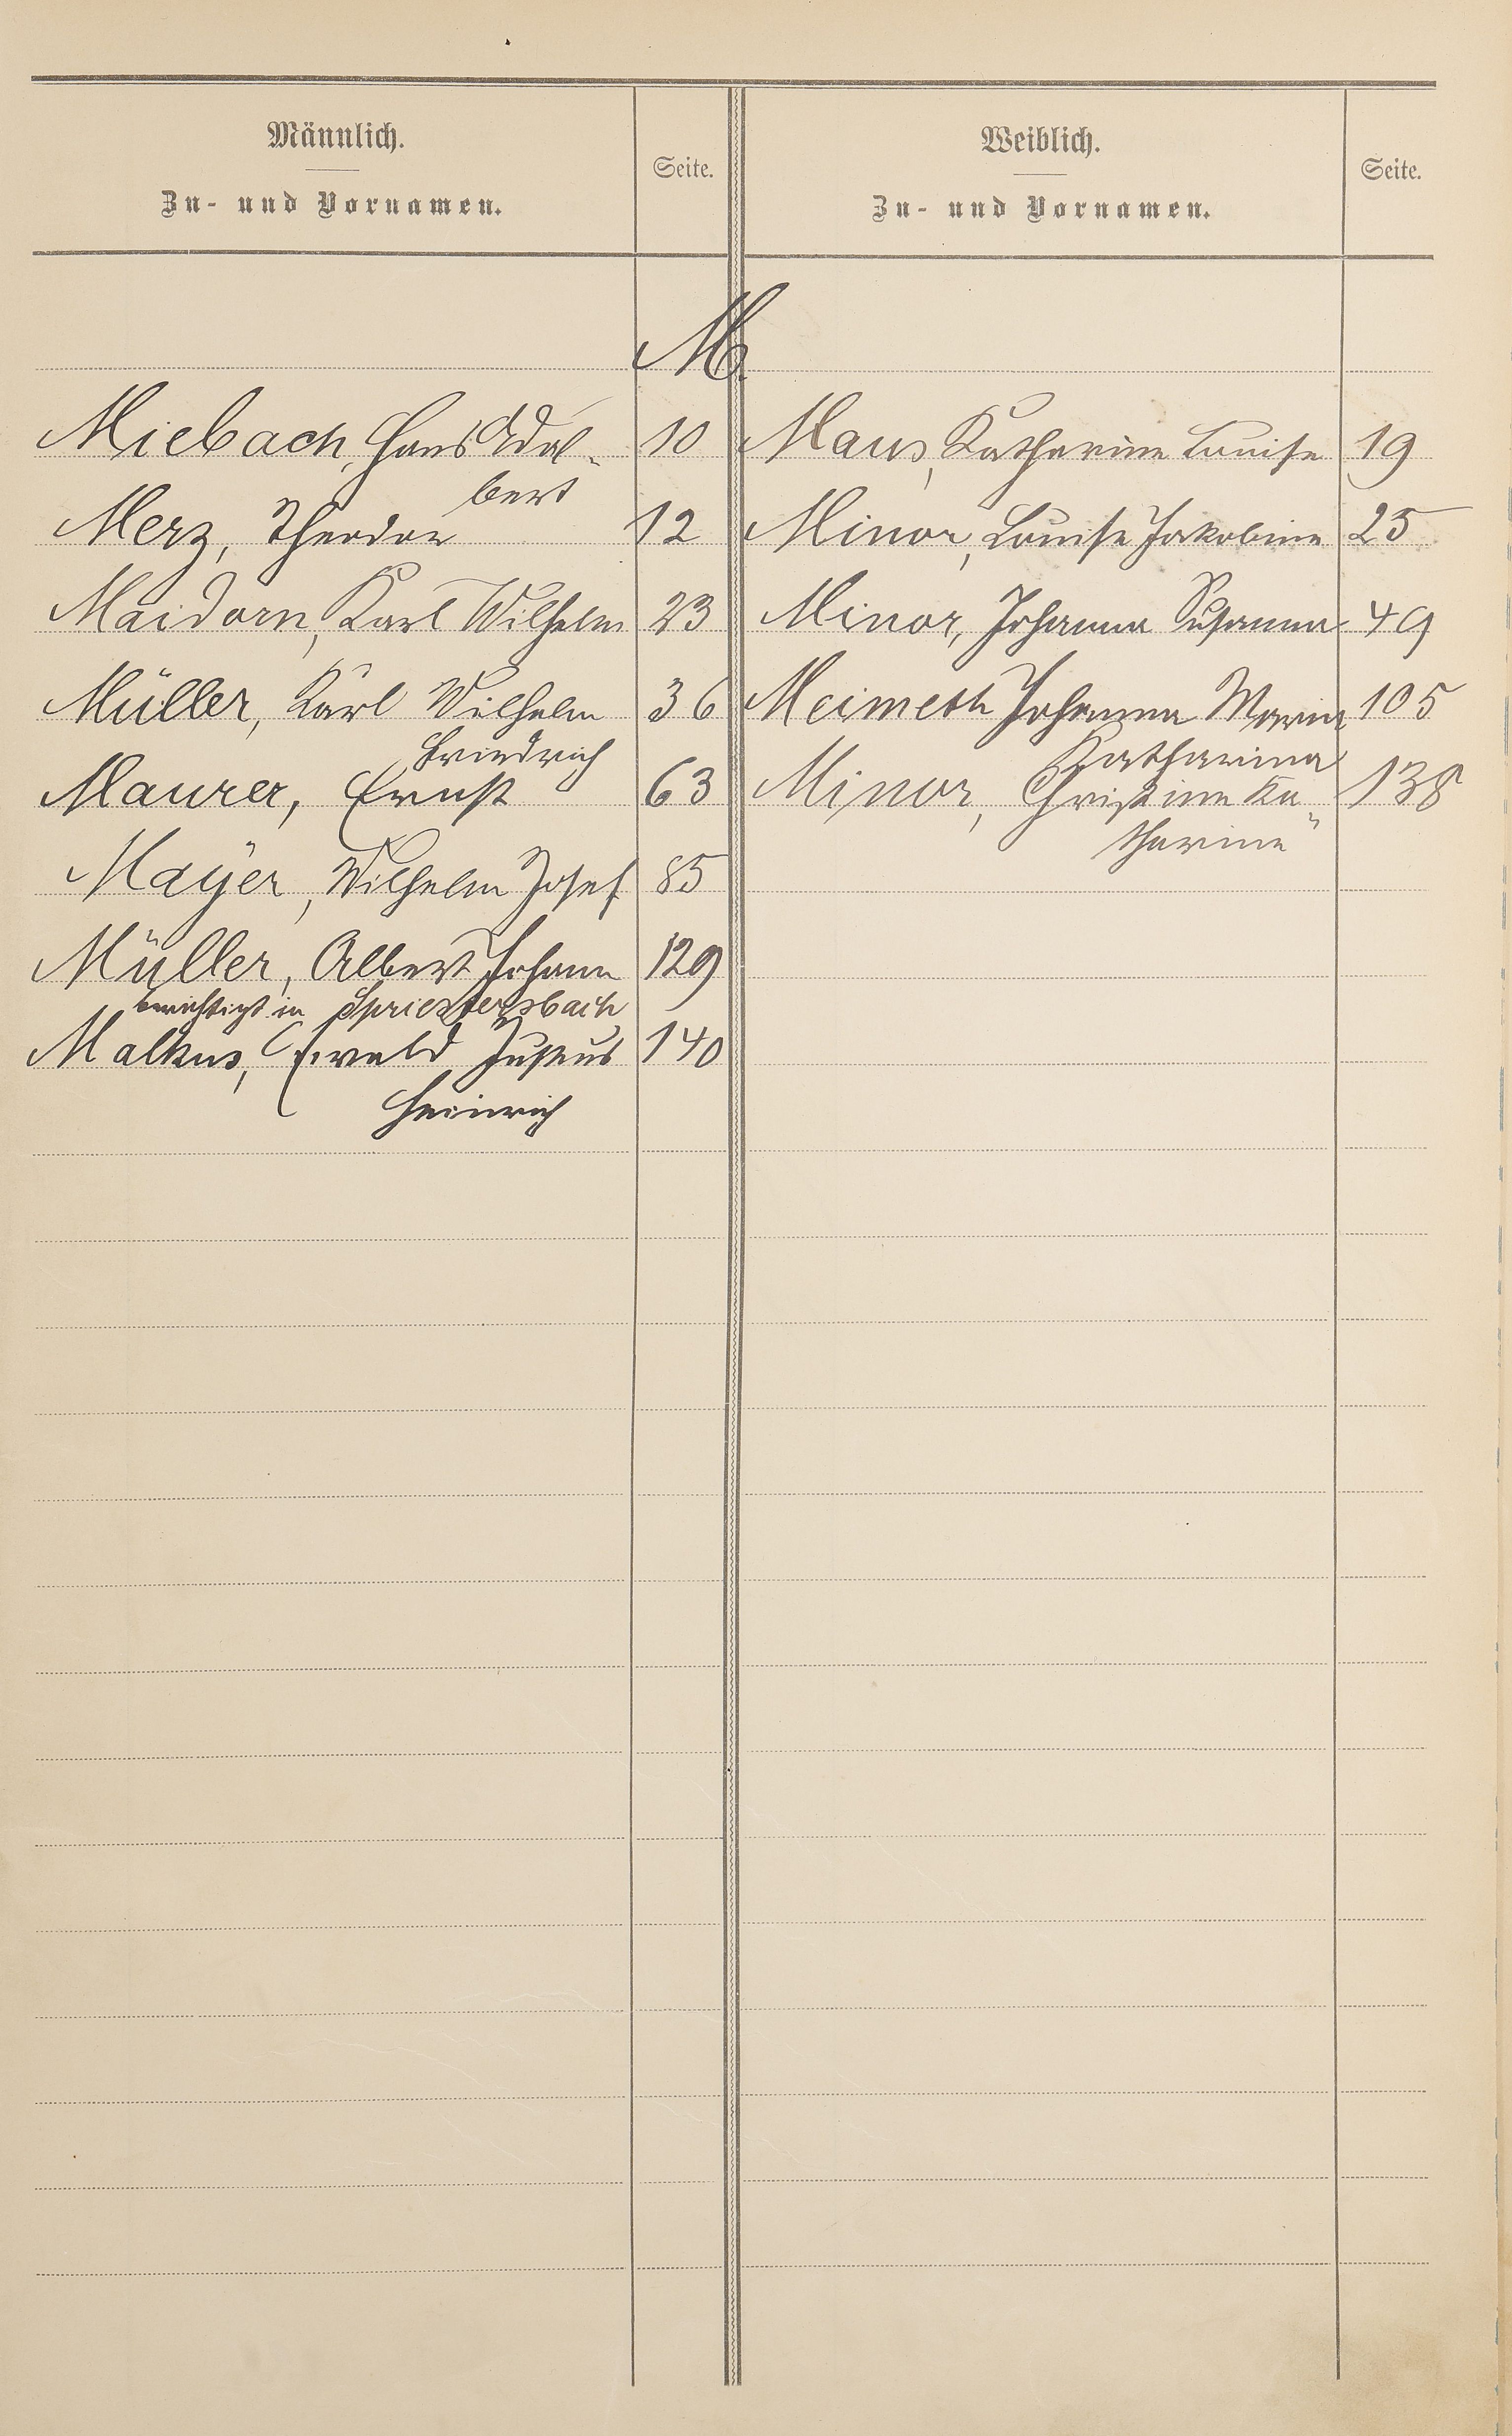 Männlich.
Zu- und Vornamen.
Seite.
Weiblich.
Zu- und Vornamen.
Seite.
M.
Miebach, Hans Adal-
bert
10
Merz, Theodor
12
Maidorn, Karl Wilhelm
23
Müller, Karl Wilhelm
Friedrich
36
Maurer, Ernst
63
Mayer, Wilhelm Josef
85
Müller, Albert Johann
129
berichtigt in Spriestersbach
Malkus, Ewald Justus
140
Heinrich
Maus, Katharine Louise
19
Minor, Louise Jakobine
25
Minor, Johanna Susanna
49
Meimeth Johanna Maria
105
Katharina
Minor, Christine Ka-
138
tharine